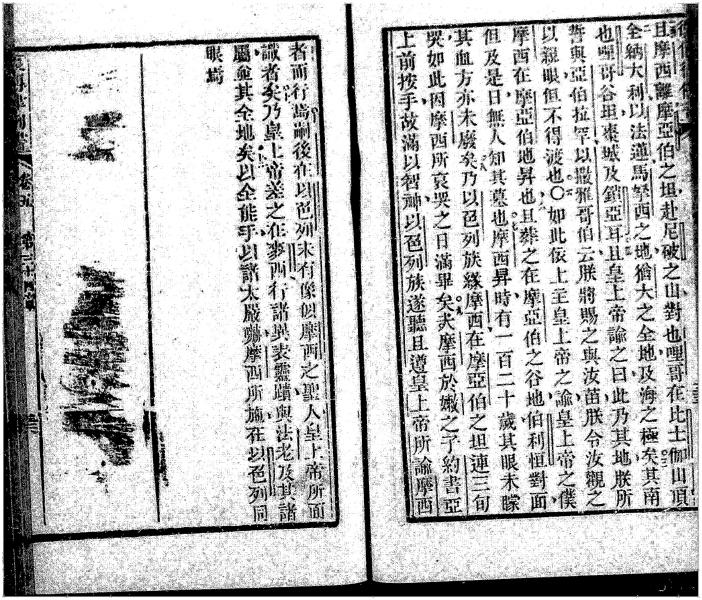 且摩西離摩亞伯之坦赴尼破之山對也哩哥在比士伽山頂
全納大利以法蓮馬拏西之地猶大之全地及海之極矣其南
也哩哥谷坦棗城及鎖亞耳且皇上帝諭之曰此乃其地朕所
誓與亞伯拉罕以撒雅哥伯云朕將賜之與汝苗朕令汝觀之
以親眼但不得渡也○如此依上主皇上帝之諭皇上帝之僕
摩西在摩亞伯地昇也且葬之在摩亞伯之谷地伯利恒對面
但及是日無人知其墓也摩西昇時有一百二十歲其眼未矇
其血方亦未廢矣乃以色列族緣摩西在摩亞伯之坦連三旬
哭如此因摩西所哀哭之日滿畢矣夫摩西於嫩之子約書亞
上前按手故滿以智神以色列族遂聽且遵皇上帝所諭摩西
者而行焉嗣後在以色列未有像似摩西之聖人皇上帝所面
識者矣乃皇上帝差之在麥西行諸異表靈蹟與法老及其諸
屬並其全地矣以全能手以諸太嚴摩西所施在以色列同
眼焉
卷五